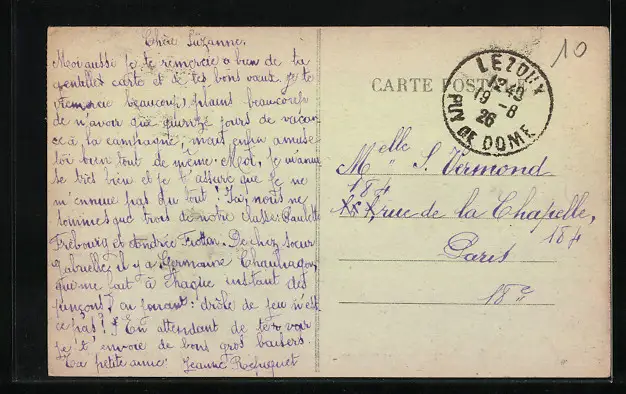 Chère Süzanne.
Moi aussi je te remercie o bien de ta
gentille carte et de tes bons vœux je te
remercie beaucoup plains beaucoup
de n'avoir que quinze jours de vacan
ce à la campagne, mais enfin amuse
toi bien tout de même. Moi, je m'amu
se très bien et je t'assure que je ne
m'ennuie pas du tout! Ici nous ne
sommes que trois de notre classe: Paulette
Frébourg et Andrée. De chez sœur
Isabelle, il y a Germaine
qui me fait à chaque instant des
pinçons, en jouant: drôle de jeu n'est
ce pas! En attendant de te voir
je t'envoie de bons gros baisers.
Ta petite amie Jeanne
CARTE POSTALE
LEZOUX
12 40
19 -8
26
PUY DE DOME
10
Melle S. Vermond
184
rue de la Chapelle,
184
Paris
18e